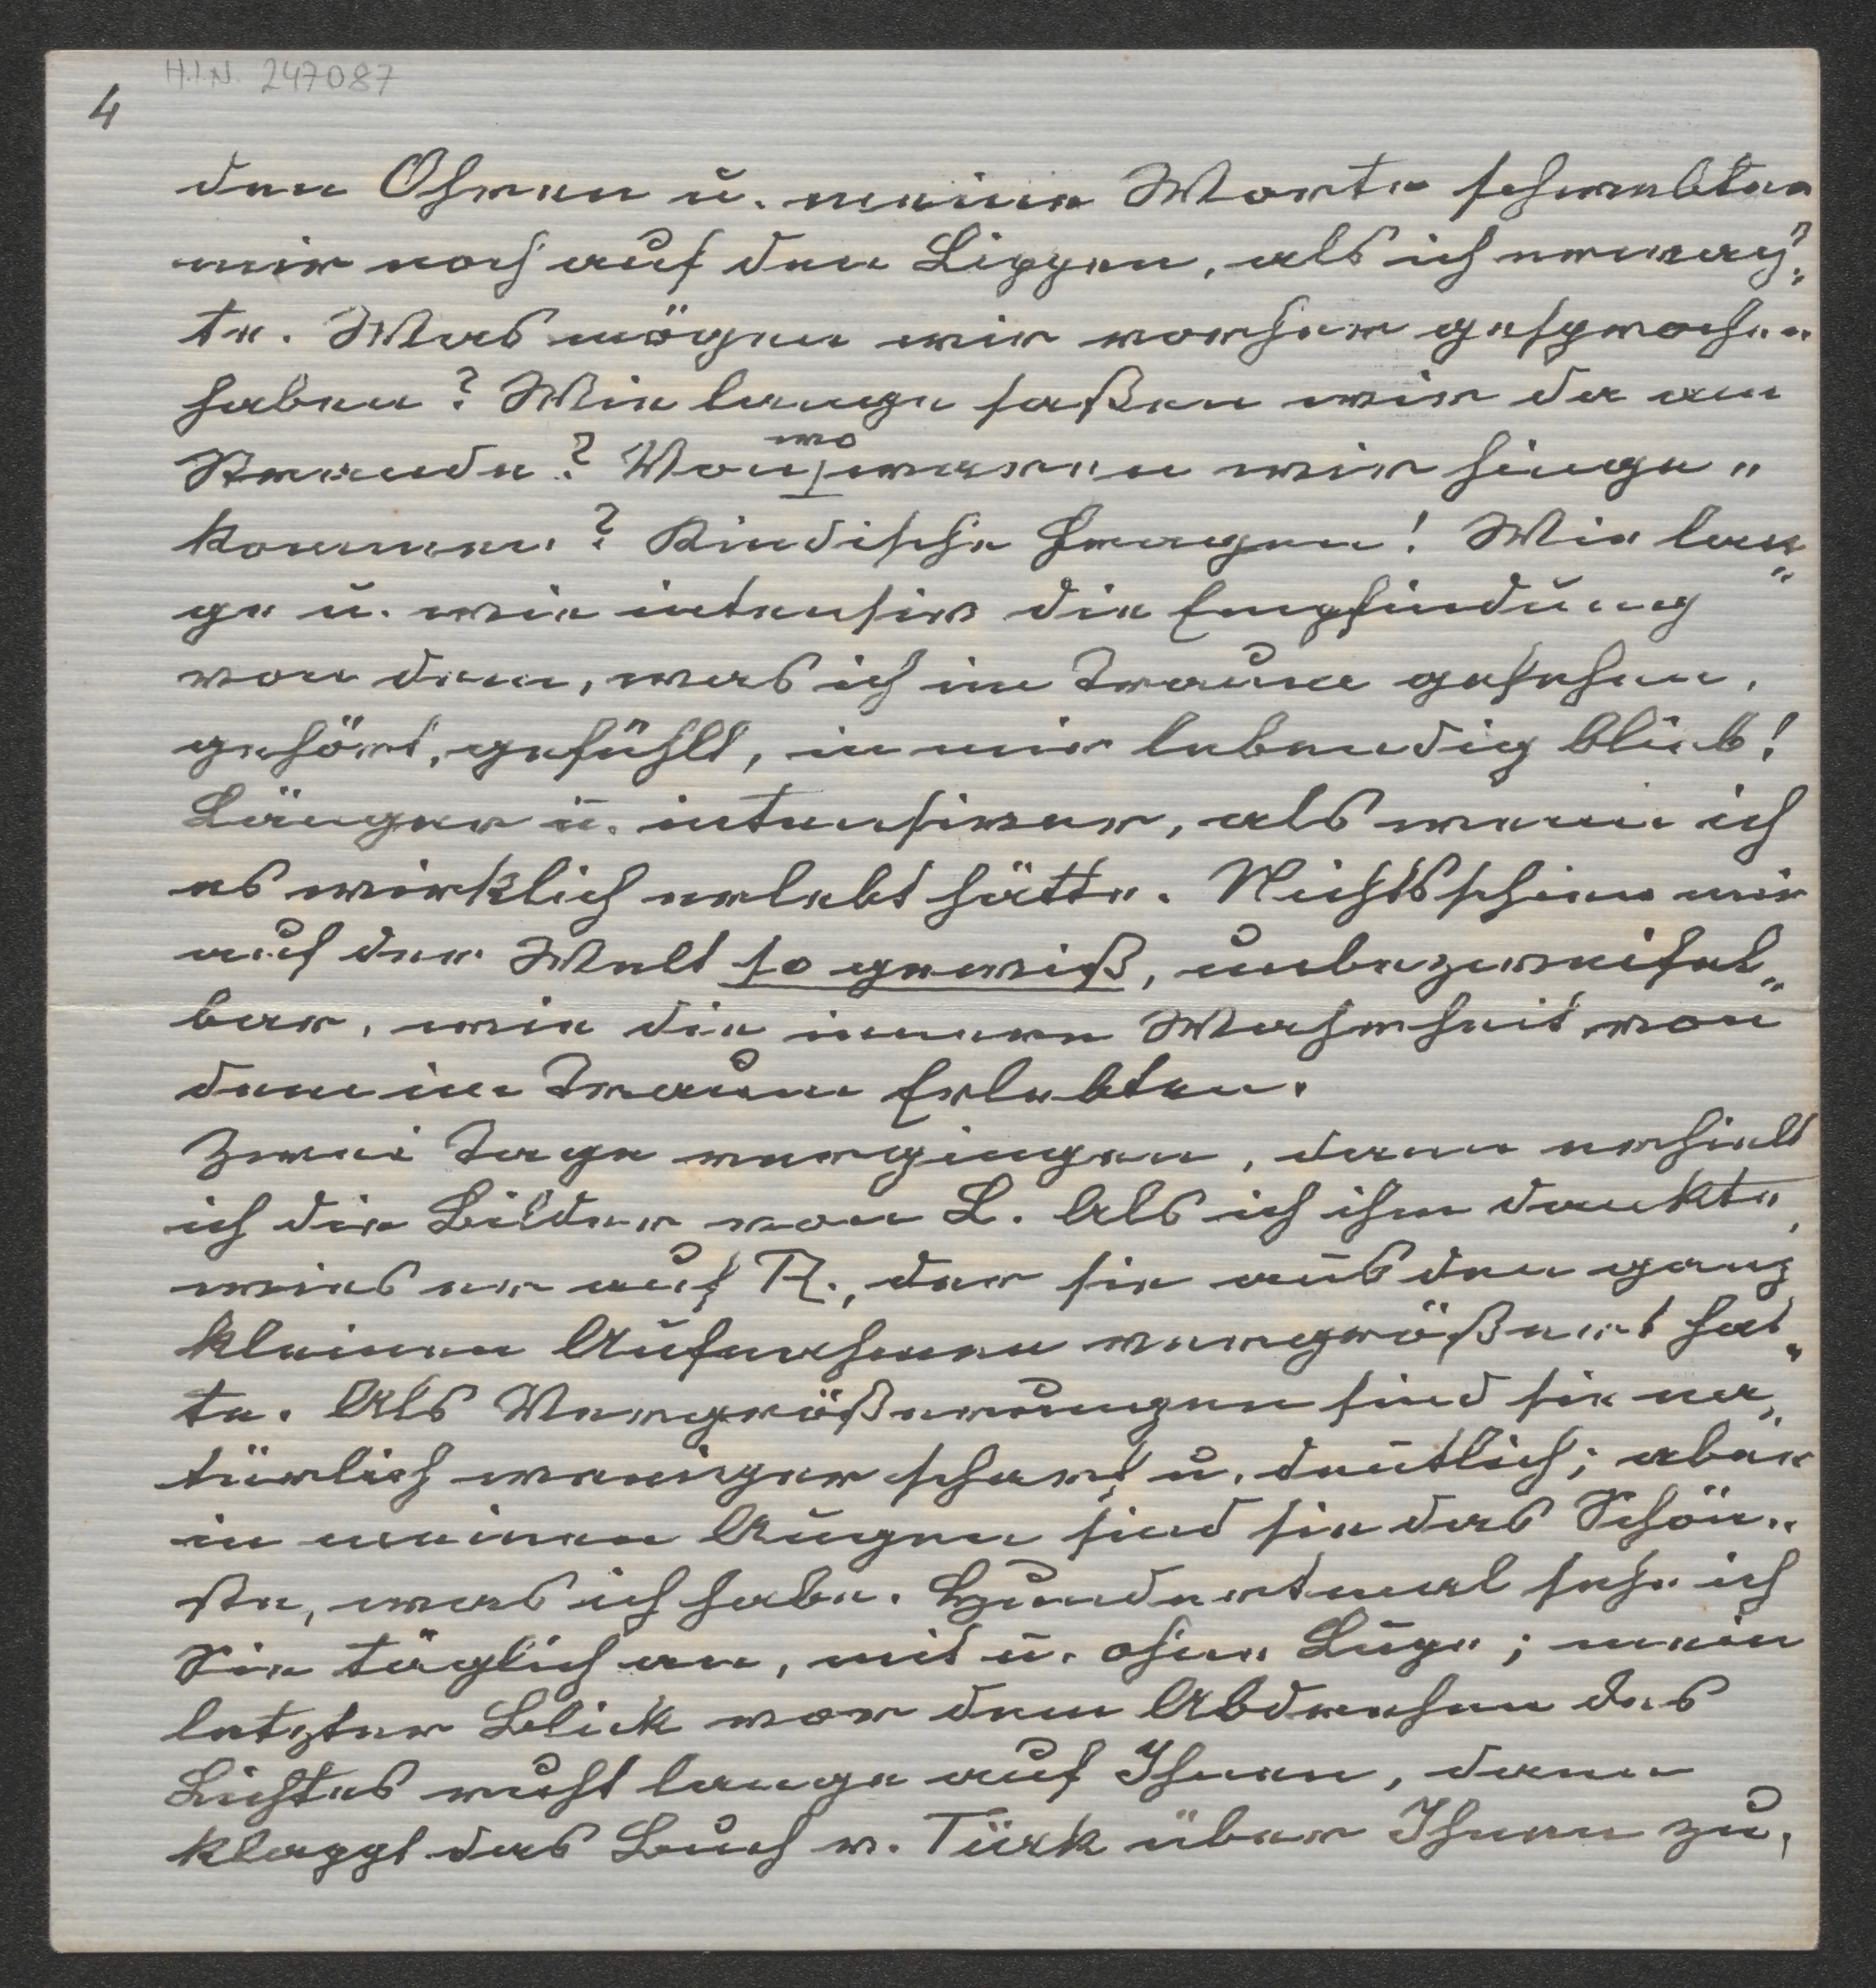 H.I.N. 247087
4
den Ohren u. meine Worte schwebten
mir noch auf den Lippen, als ich erwach„
te. Was mögen wir vorher gesprochen
haben? Wie lange saßen wir da am
Strande? Von wo waren wir hinge„
kommen? Kindische Fragen! Wie lan„
ge u. wie intensiv die Empfindung
von dem, was ich im Traume gesehen,
gehört, gefühlt, in mir lebendig blieb!
Länger u. intensiver, als wenn ich
es wirklich erlebt hätte. Nichts schien mir
auf der Welt so gewiß, unbezweifel„
bar, wie die innere Wahrheit von
dem im Traum Erlebten.
Zwei Tage vergingen, dann erhielt
ich die Bilder von L. Als ich ihm dankte,
wies er auf R., der sie aus den ganz
kleinen Aufnahmen vergrößert hat„
te. Als Vergrößerungen sind sie na„
türlich weniger scharf u. deutlich; aber
in meinen Augen sind sie das Schön„
ste, was ich habe. Hundertmal sehe ich
Sie täglich an, mit u. ohne Lupe; mein
letzter Blick vor dem Abdrehen des
Lichtes ruht lange auf Ihnen, dann
klappt das Buch v. Türk über Ihnen zu,